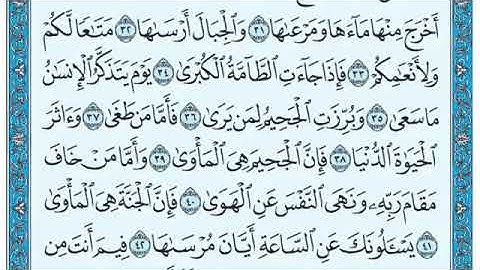 أَخْرَجَ مِنْهَا مَآءَهَا وَمَرْعَىٰهَا ٣١ وَٱلْجِبَالَ أَرْسَىٰهَا ٣٢ مَتَٰعًا لَّكُمْ
وَلِأَنْعَٰمِكُمْ ٣٣ فَإِذَا جَآءَتِ ٱلطَّآمَّةُ ٱلْكُبْرَىٰ ٣٤ يَوْمَ يَتَذَكَّرُ ٱلْإِنسَٰنُ
مَا سَعَىٰ ٣٥ وَبُرِّزَتِ ٱلْجَحِيمُ لِمَن يَرَىٰ ٣٦ فَأَمَّا مَن طَغَىٰ ٣٧ وَءَاثَرَ
ٱلْحَيَوٰةَ ٱلدُّنْيَا ٣٨ فَإِنَّ ٱلْجَحِيمَ هِىَ ٱلْمَأْوَىٰ ٣٩ وَأَمَّا مَنْ خَافَ
مَقَامَ رَبِّهِۦ وَنَهَى ٱلنَّفْسَ عَنِ ٱلْهَوَىٰ ٤٠ فَإِنَّ ٱلْجَنَّةَ هِىَ ٱلْمَأْوَىٰ
٤١ يَسْـَٔلُونَكَ عَنِ ٱلسَّاعَةِ أَيَّانَ مُرْسَىٰهَا ٤٢ فِيمَ أَنتَ مِن